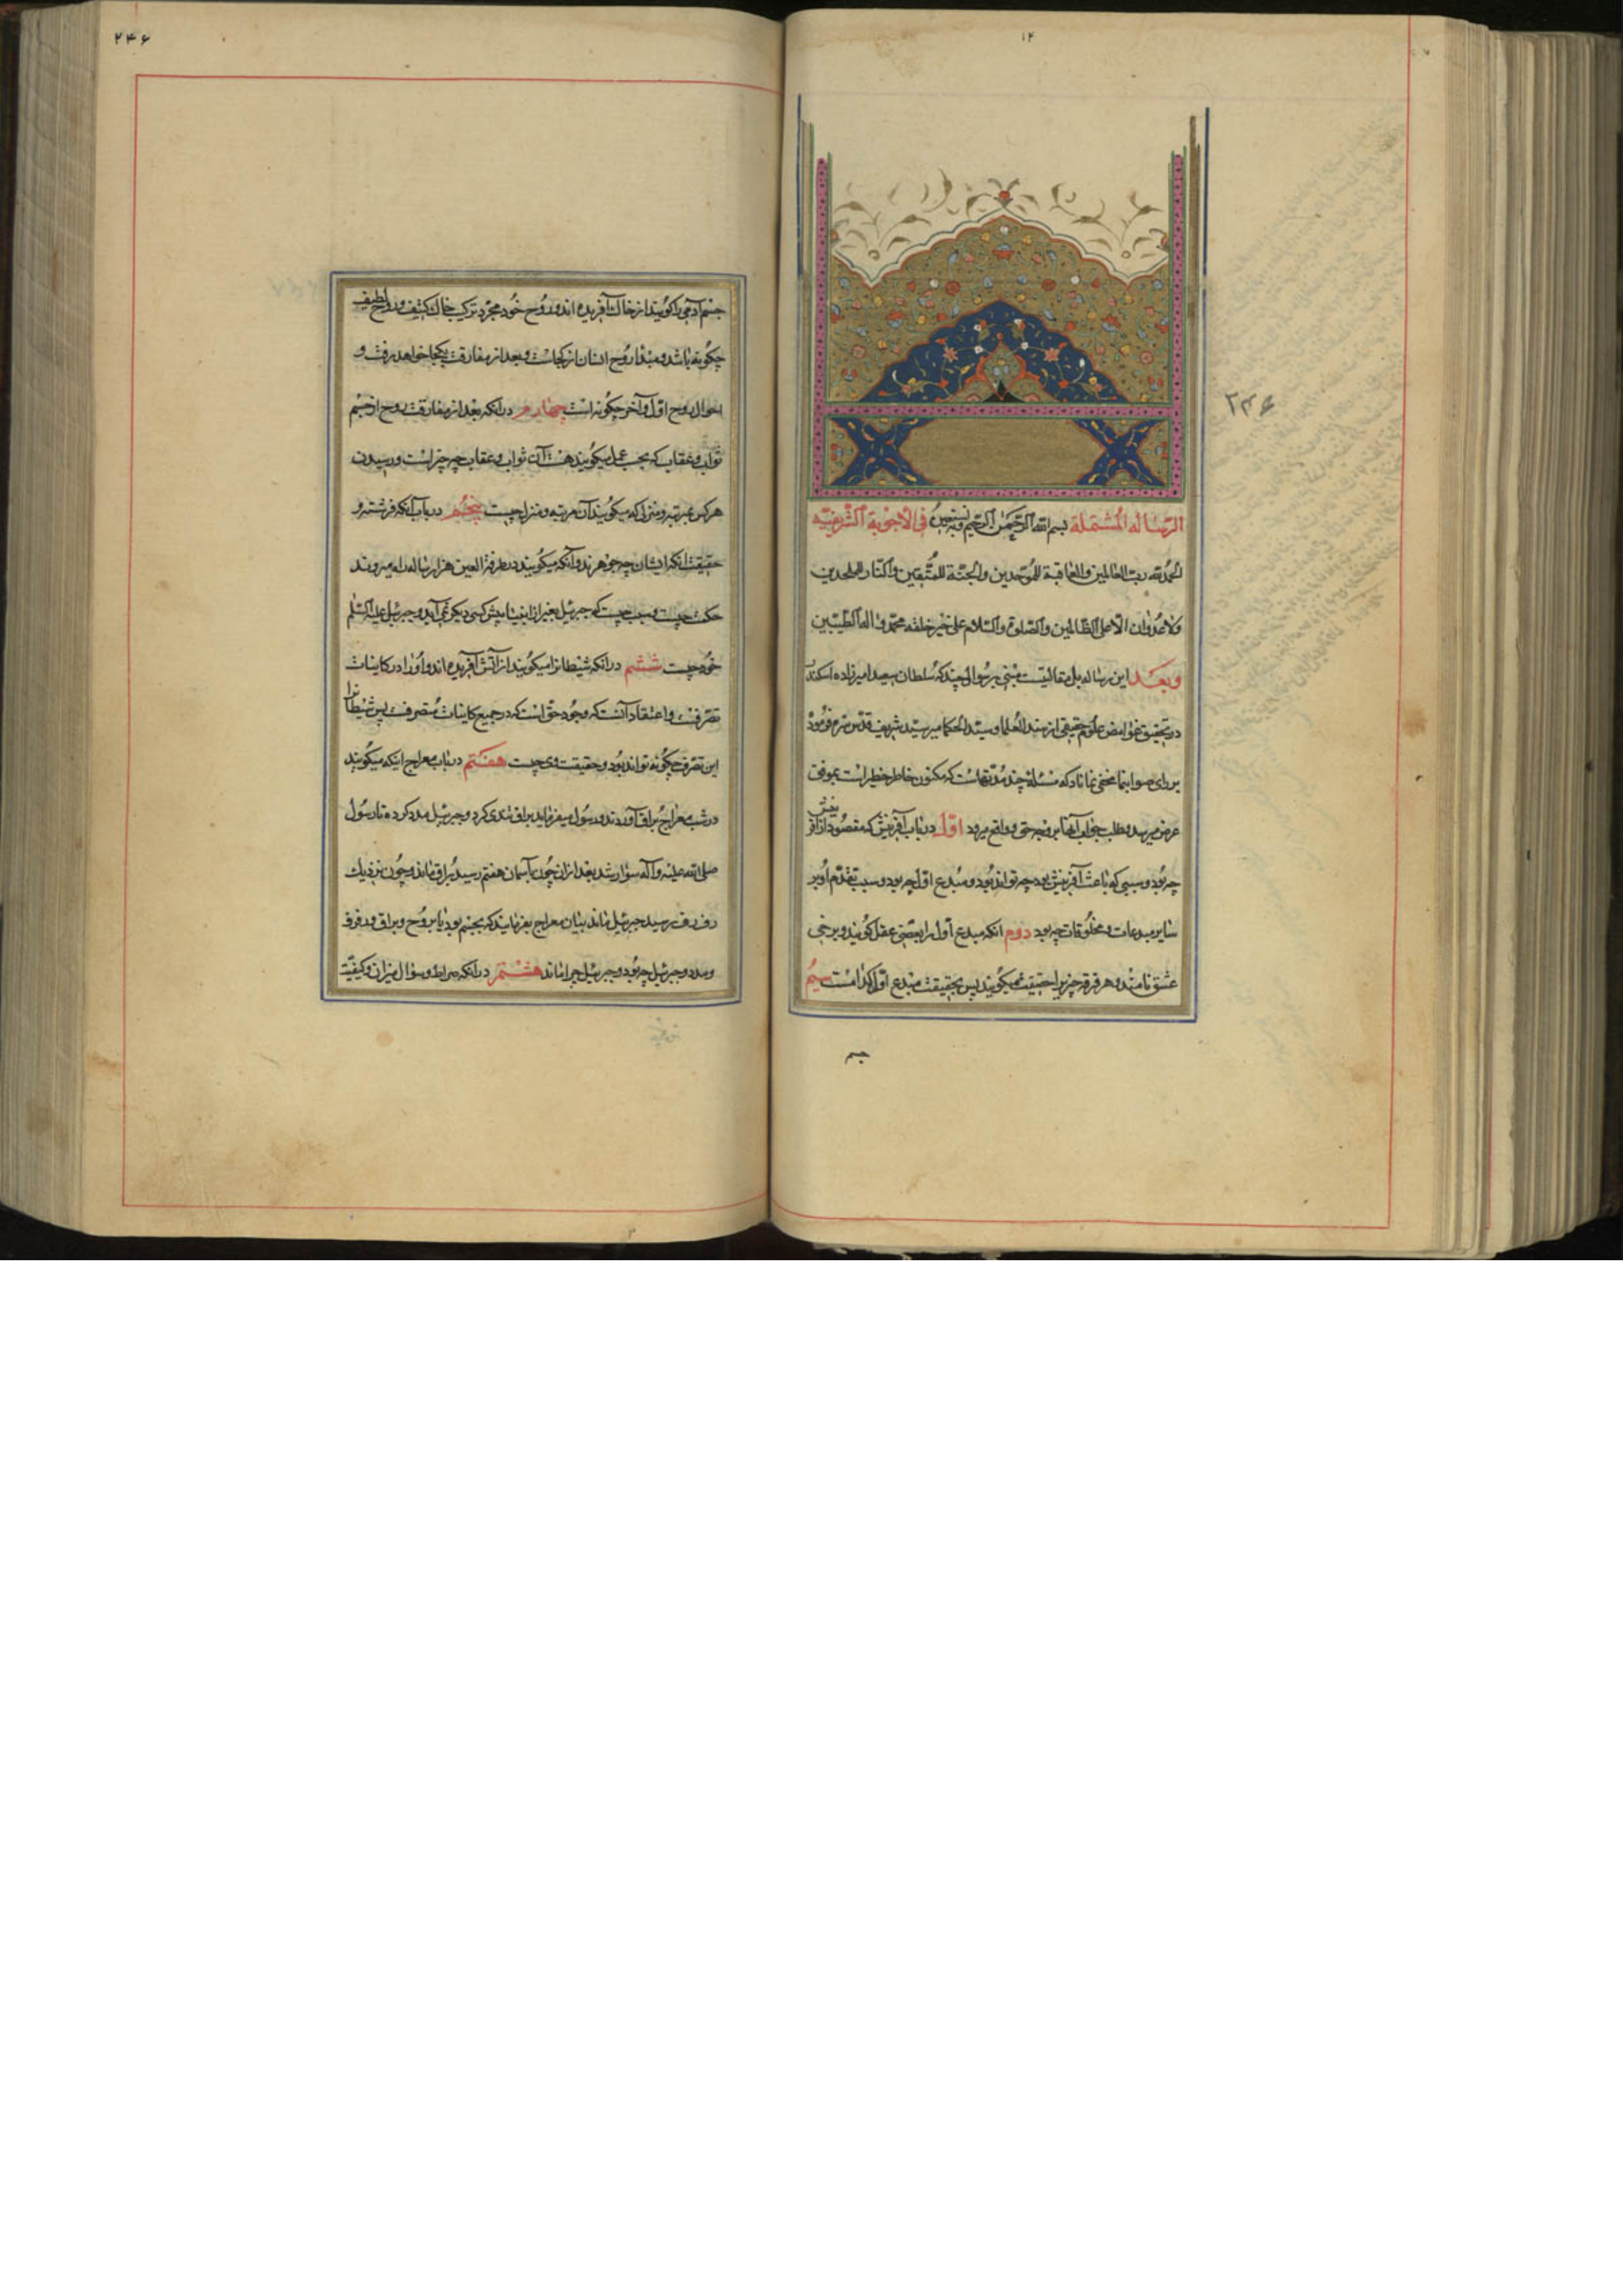 ۱۲
الرسالة المشتملة بسم الله الرحمن الرحيم وبه نستعين فی الاجوبة الشريفيّه
الحمد لله رب العالمين والعاقبة للموحدين والجنّة للمتّقين والنار للملحدين
ولا عدوان الا علی الظالمين والصلوة والسلام علی خير خلقه محمّد و اله الطيّبين
وبعد اين رساله بل مقاليست مبنی بر سؤالی چند که سلطان سعيد اميرزاده اسکندر
در تحقيق غوامض علوم حقيقی از سند العلما و سيّد الحکما مير سيّد شريف قدّس سره فرموده
بر رای صواب نما مخفی نماناد که مسئلهٔ چند مدّتهاست که مکنون خاطر خطيرست بموقف
عرض ميرسد و طلب جواب آنها بر وجه حق و واقع ميرود اوّل در باب آفرينش که مقصود از آفرينش
چه بُود و سببی که باعث آفرينش بود چه تواند بُود و مُبدع اول چه بود و سبب تقدّم او بر
ساير مبدعات و مخلُوقات چه بود دوم انکه مبدع اول را بعضی عقل گويند و برخی
عشق نامند و هر فرقه چيزيرا حقيقت ميگويند پس بحقيقت مبدع اوّل کدامست سيُم
جسم
۲۴۶
۲۴۶
جسم آدمی را گويند از خاک آفريده اند و روح خُود مجرّد ترکيب خاک کثيف و روح لطيف
چگونه باشد و مبدا روُح انسان از کجاست و بعد از مفارقت بکجا خواهد رفت و
احوال روح اوّل و آخر چگونه است چهارم در انکه بعد از مفارقت روح از جسم
ثواب و عقاب که بحسب عمل ميگويند هست آن ثواب و عقاب چه چيز است و رسيدن
هر کس بمرتبه و منزلی که ميگويند آن مرتبه و منزل چيست پنجُم در باب آنکه فرشته و
حقيقت انکه ايشان چه جوهرند و آنکه ميگويند در طرفة العين هزار ساله راه ميروند
حکمت چيست و سبب چيست که جبرئيل بغير از انبيا پيش کسی ديگر نمی آيد و جبرئيل عليه السلم
خود چيست ششم در انکه شيطانرا ميگويند از آتش آفريده اند و اُو را در کاينات
تصرّفست و اعتقاد آنست که وجُود حق است که در جميع کاينات مُتصرفست پس شيطانرا
اين تصرف چگونه تواند بُود و حقيقت وی چيست هفتم در باب معراج اينکه ميگويند
در شب معراج بُراق آوردند و رسُول ميفرمايد براق تندی کرد و جبرئيل مدد کرده تا رسُول
صلی الله عليه و آله سوار شد بعد از ان چون بآسمان هفتم رسيد بُراق بماند و چُون بنزديک
رف رف رسيد جبرئيل بماند بيان معراج بفرمايند که بجسم بود يا بر رُوح و براق و رفرف
و مدد و جبرئيل چه بُود و جبرئيل چرا بماند هشتم در انکه صراط و سؤال ميزان و کيفيّت